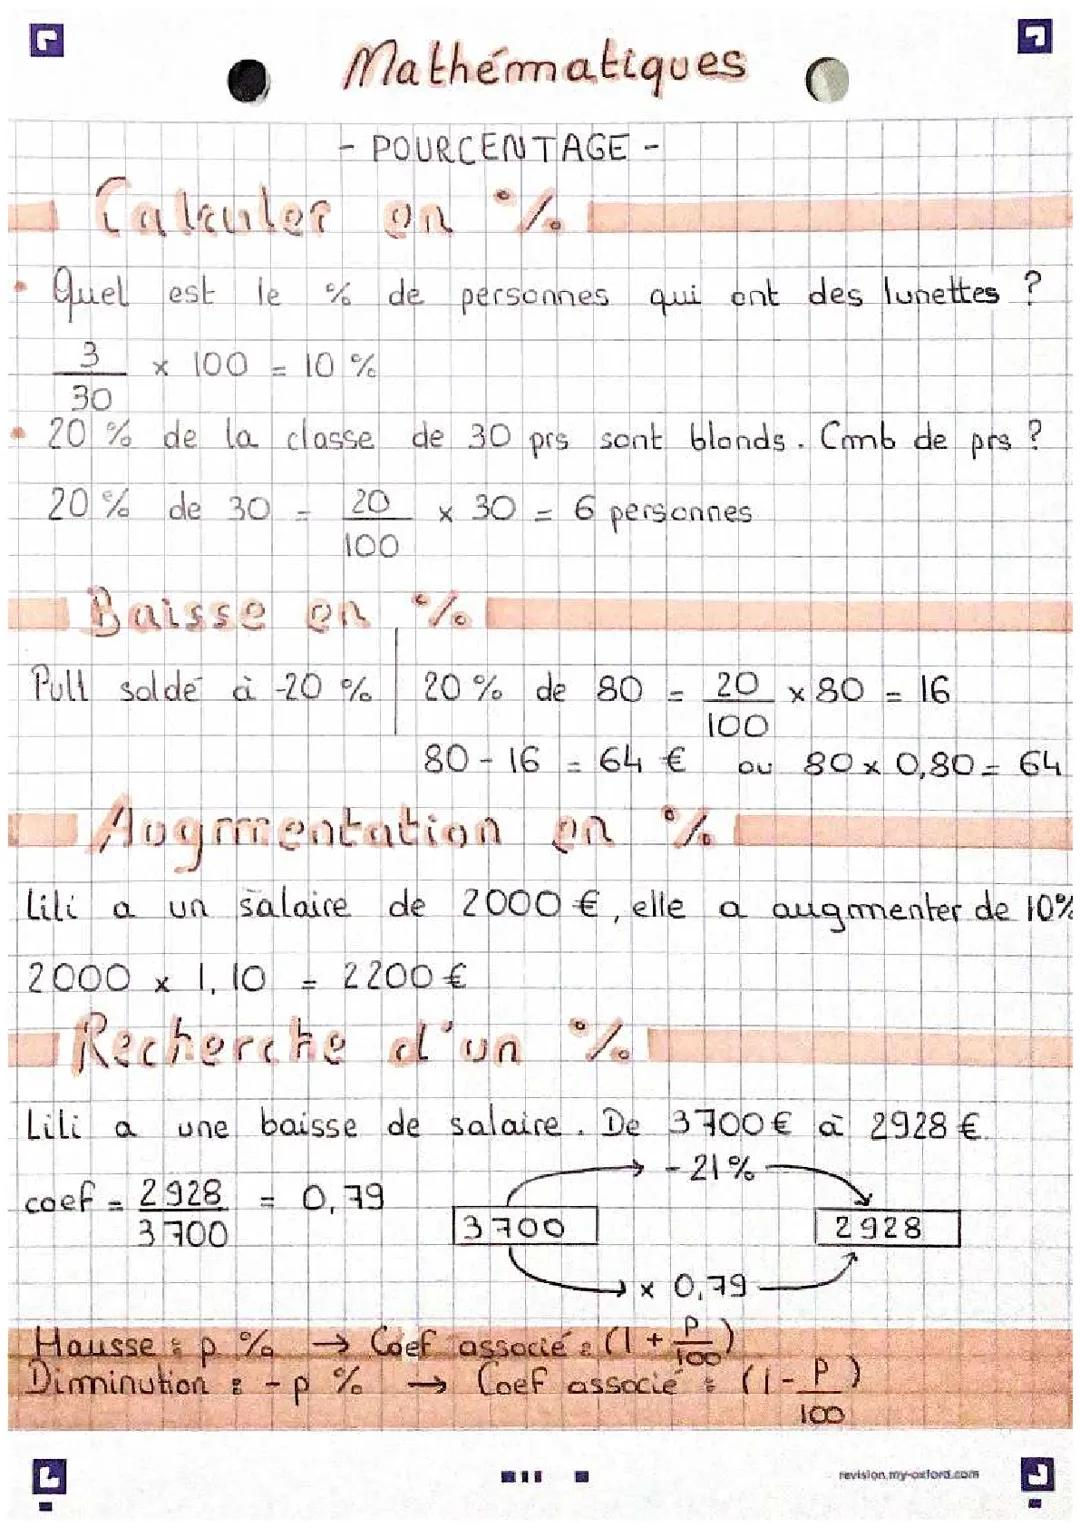 Mathématiques
- POURCENTAGE -
Calculer en %
• Quel est le % de personnes qui ont des lunettes ?
3/30 x 100 = 10 %
• 20 % de la classe de 30 prs sont blonds. Cmb de prs ?
20 % de 30 = 20/100 x 30 = 6 personnes
Baisse en %
Pull soldé à -20 % | 20 % de 80 = 20/100 x 80 = 16
80 - 16 = 64 € ou 80 x 0,80 = 64
Augmentation en %
Lili a un salaire de 2000 €, elle a augmenter de 10%
2000 x 1,10 = 2200 €
Recherche d'un %
Lili a une baisse de salaire. De 3700 € à 2928 €.
- 21 %
coef = 2928/3700 = 0,79
3700
2928
x 0,79
Hausse : p % → Coef associé : (1 + p/100)
Diminution : - p % → Coef associé : (1 - p/100)
revision.my-oxford.com